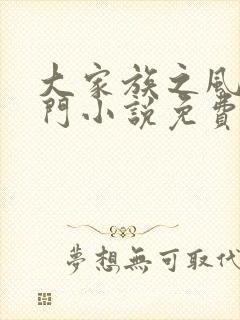 大家族之風
門小說免費
夢想無可取代